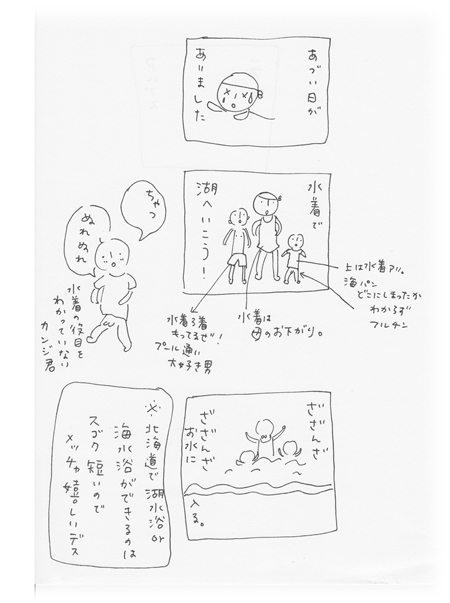 あづい日が
ありました
水着で
湖へいこう!
上は水着アリ。
海パン
どこにしまったか
わからず
フルチン
水着は
母のお下がり。
水着3着
もってるぜ!
プール通い
大好き男
ちゃっ
ぬれぬれ
水着の役目を
わかっていない
カンジ君
ざざんざ
ざざんざ
お水に
入る。
※北海道で湖水浴or
海水浴ができるのは
スゴク短いので
メッチャ嬉しいデス